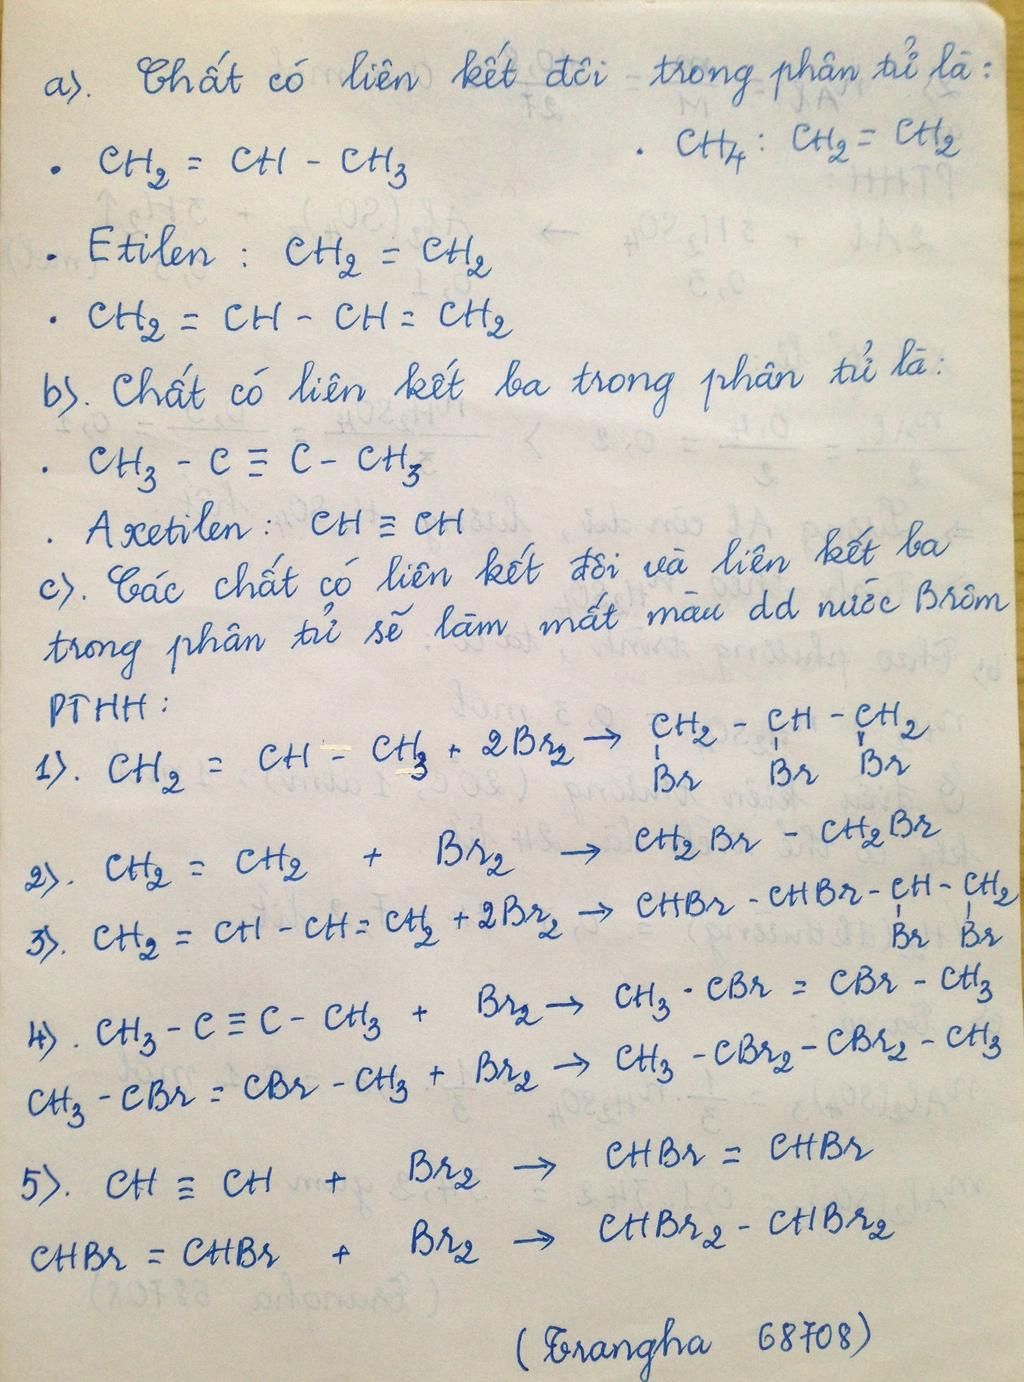 a). Chất có liên kết đôi trong phân tử là:
. CH₂ = CH - CH₃ . CH₄ : CH₂ = CH₂
. Etilen : CH₂ = CH₂
. CH₂ = CH - CH = CH₂
b). Chất có liên kết ba trong phân tử là:
. CH₃ - C ≡ C - CH₃
. Axetilen : CH ≡ CH
c). Các chất có liên kết đôi và liên kết ba
trong phân tử sẽ làm mất màu dd nước Brôm
PTHH :
1). CH₂ = CH - CH₃ + 2Br₂ → CH₂ - CH - CH₂
Br Br Br
2). CH₂ = CH₂ + Br₂ → CH₂Br - CH₂Br
3). CH₂ = CH - CH = CH₂ + 2Br₂ → CHBr - CHBr - CH - CH₂
Br Br
4). CH₃ - C ≡ C - CH₃ + Br₂ → CH₃ - CBr = CBr - CH₃
CH₃ - CBr = CBr - CH₃ + Br₂ → CH₃ - CBr₂ - CBr₂ - CH₃
5). CH ≡ CH + Br₂ → CHBr = CHBr
CHBr = CHBr + Br₂ → CHBr₂ - CHBr₂
(Trangha 68708)